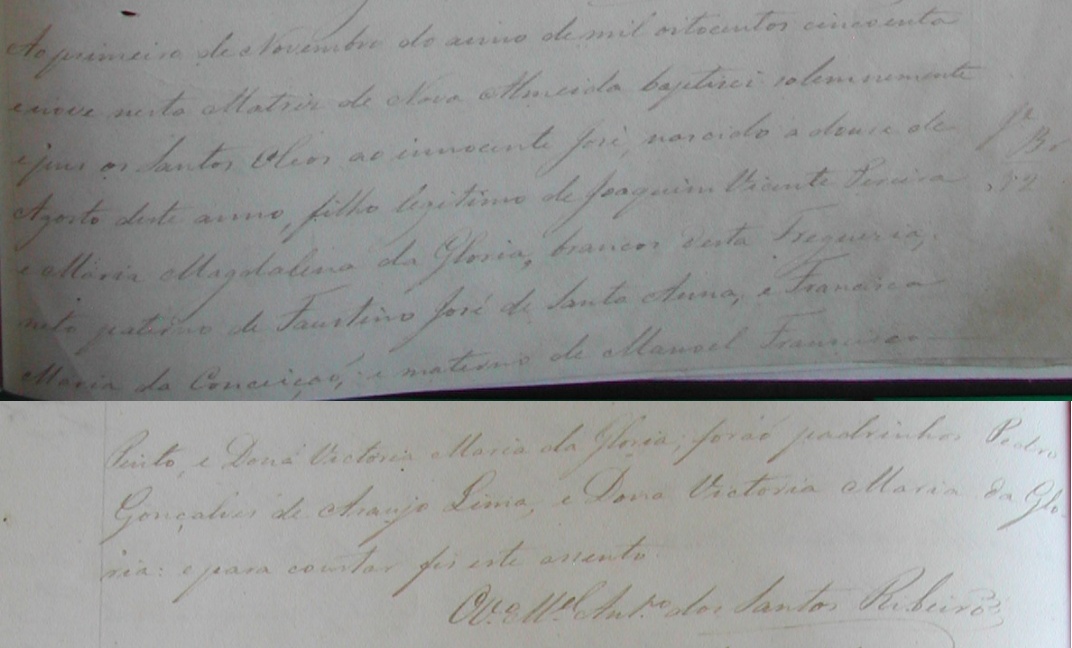 Ao primeiro de Novembro do anno de mil oitocentos cincoenta
e nove nesta Matriz de Nova Almeida baptisei solemnemente
e puz os Santos Oleos ao innocente José, nascido a douse de
Agosto deste anno, filho legitimo de Joaquim Vicente Pereira
e Maria Magdalena da Gloria, brancos desta Freguezia,
neto paterno de Faustino José de Santa Anna, e Francisca
Maria da Conceiçaõ, e materno de Manoel Francisco
Pinto, e Dona Victoria Maria da Gloria; foraõ padrinhos Pedro
Gonçalves de Araujo Lima, e Dona Victoria Maria da Glo-
ria: e para constar fis este assento.
O Vº. Mel. Antº. dos Santos Ribeiro